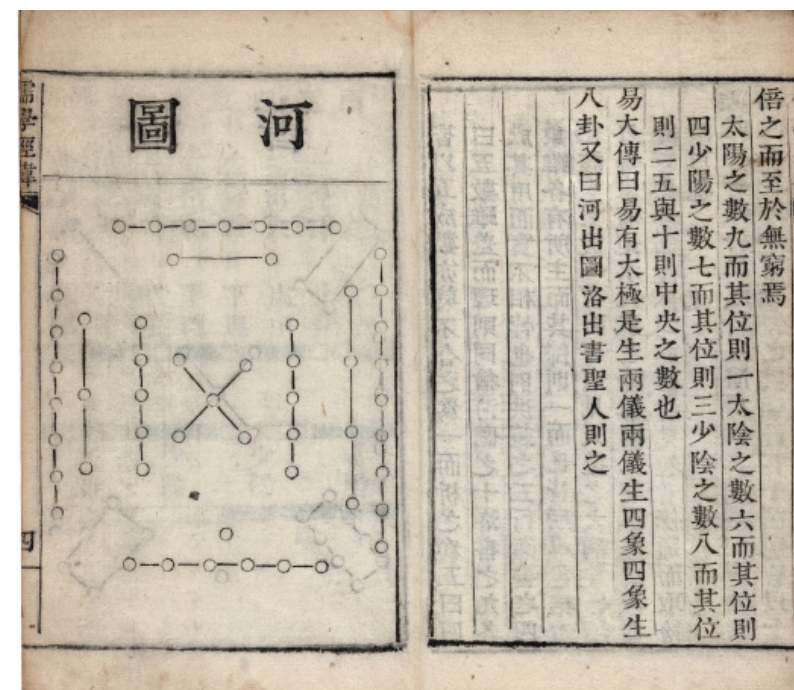 倍之而至於無窮焉
太陽之數九而其位則一太陰之數六而其位則
四少陽之數七而其位則三少陰之數八而其位
則二五與十則中央之數也
易大傳曰易有太極是生兩儀兩儀生四象四象生
八卦又曰河出圖洛出書聖人則之
河圖
儒學經緯
四